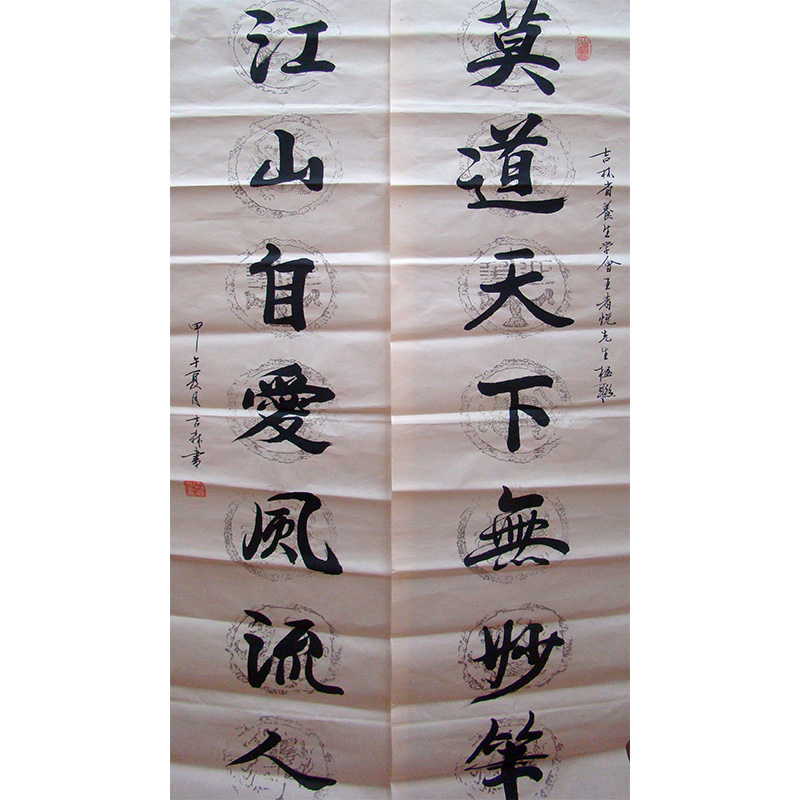 吉林省養生学會王者悦先生极聯
莫道天下無妙筆
江山自愛風流人
甲午夏月古森書